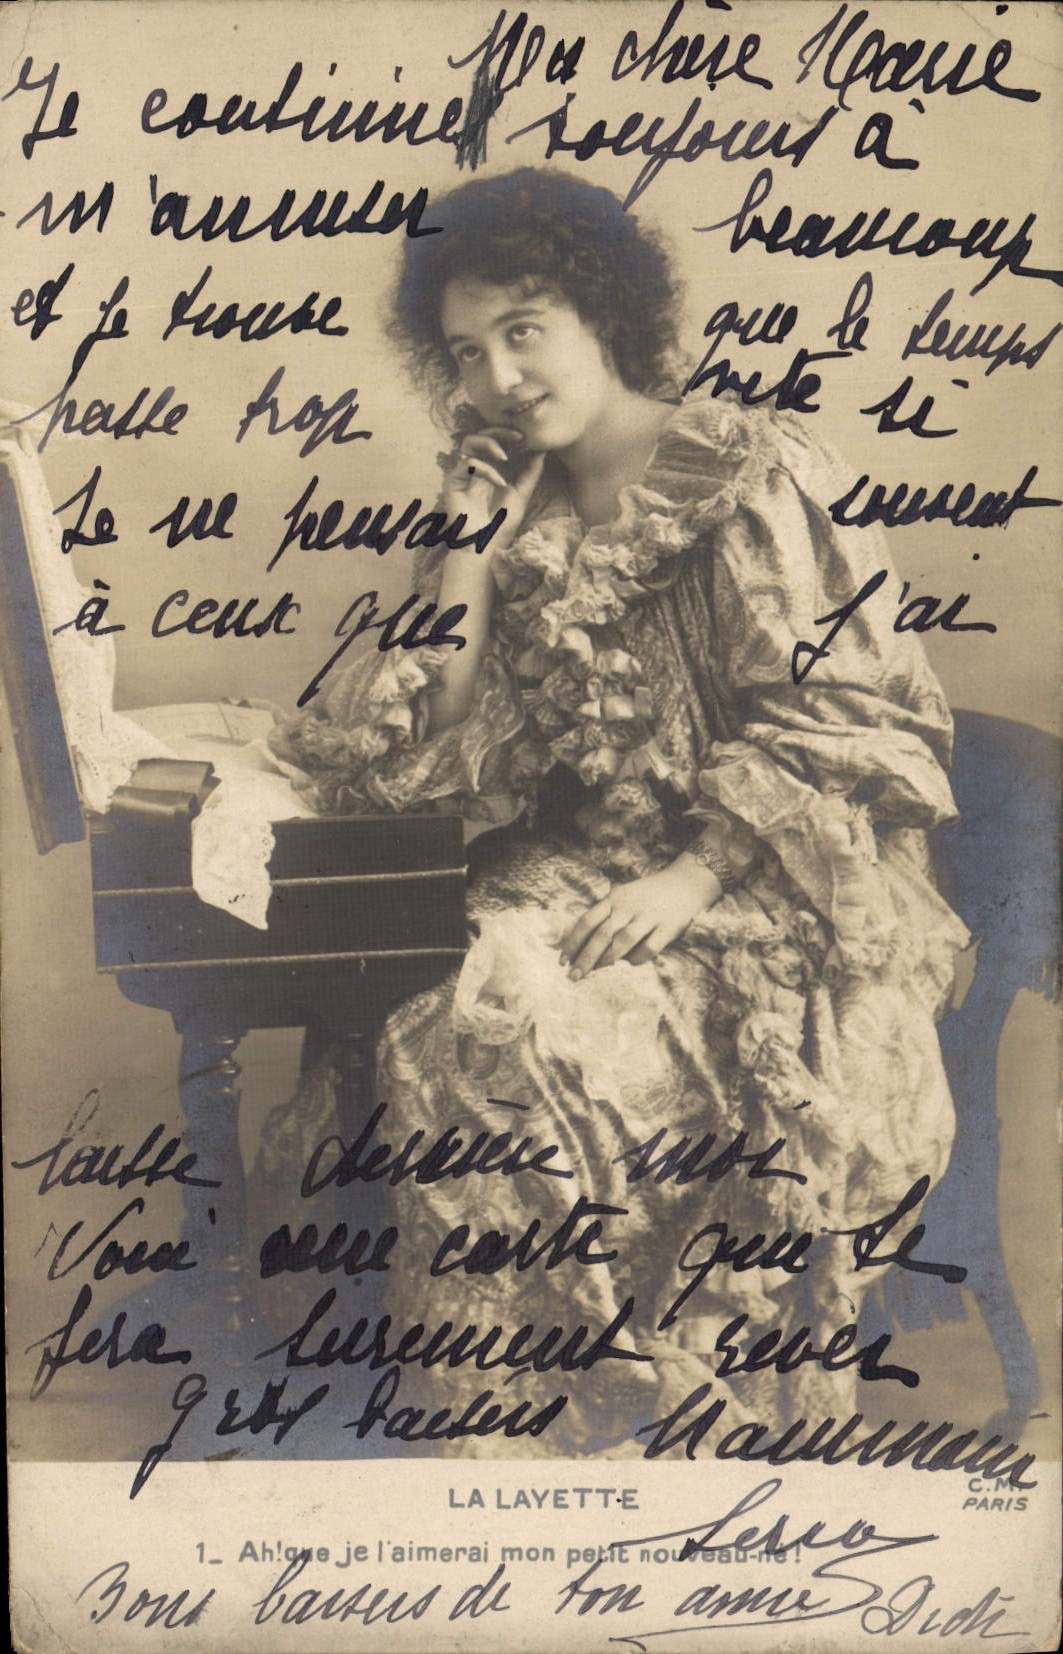 Ma chère Marie
Je continue toujours à
m'amuser beaucoup
et je trouve que le temps
passe trop vite si
Je ne pensais souvent
à ceux que j'ai
laisse derrière moi
Voici une carte qui te
fera surement rever
gros baisers Mammam
LA LAYETTE
C.M.
PARIS
1_ Ah! que je l'aimerai mon petit nouveau-né!
Bons baisers de ton amie Didi